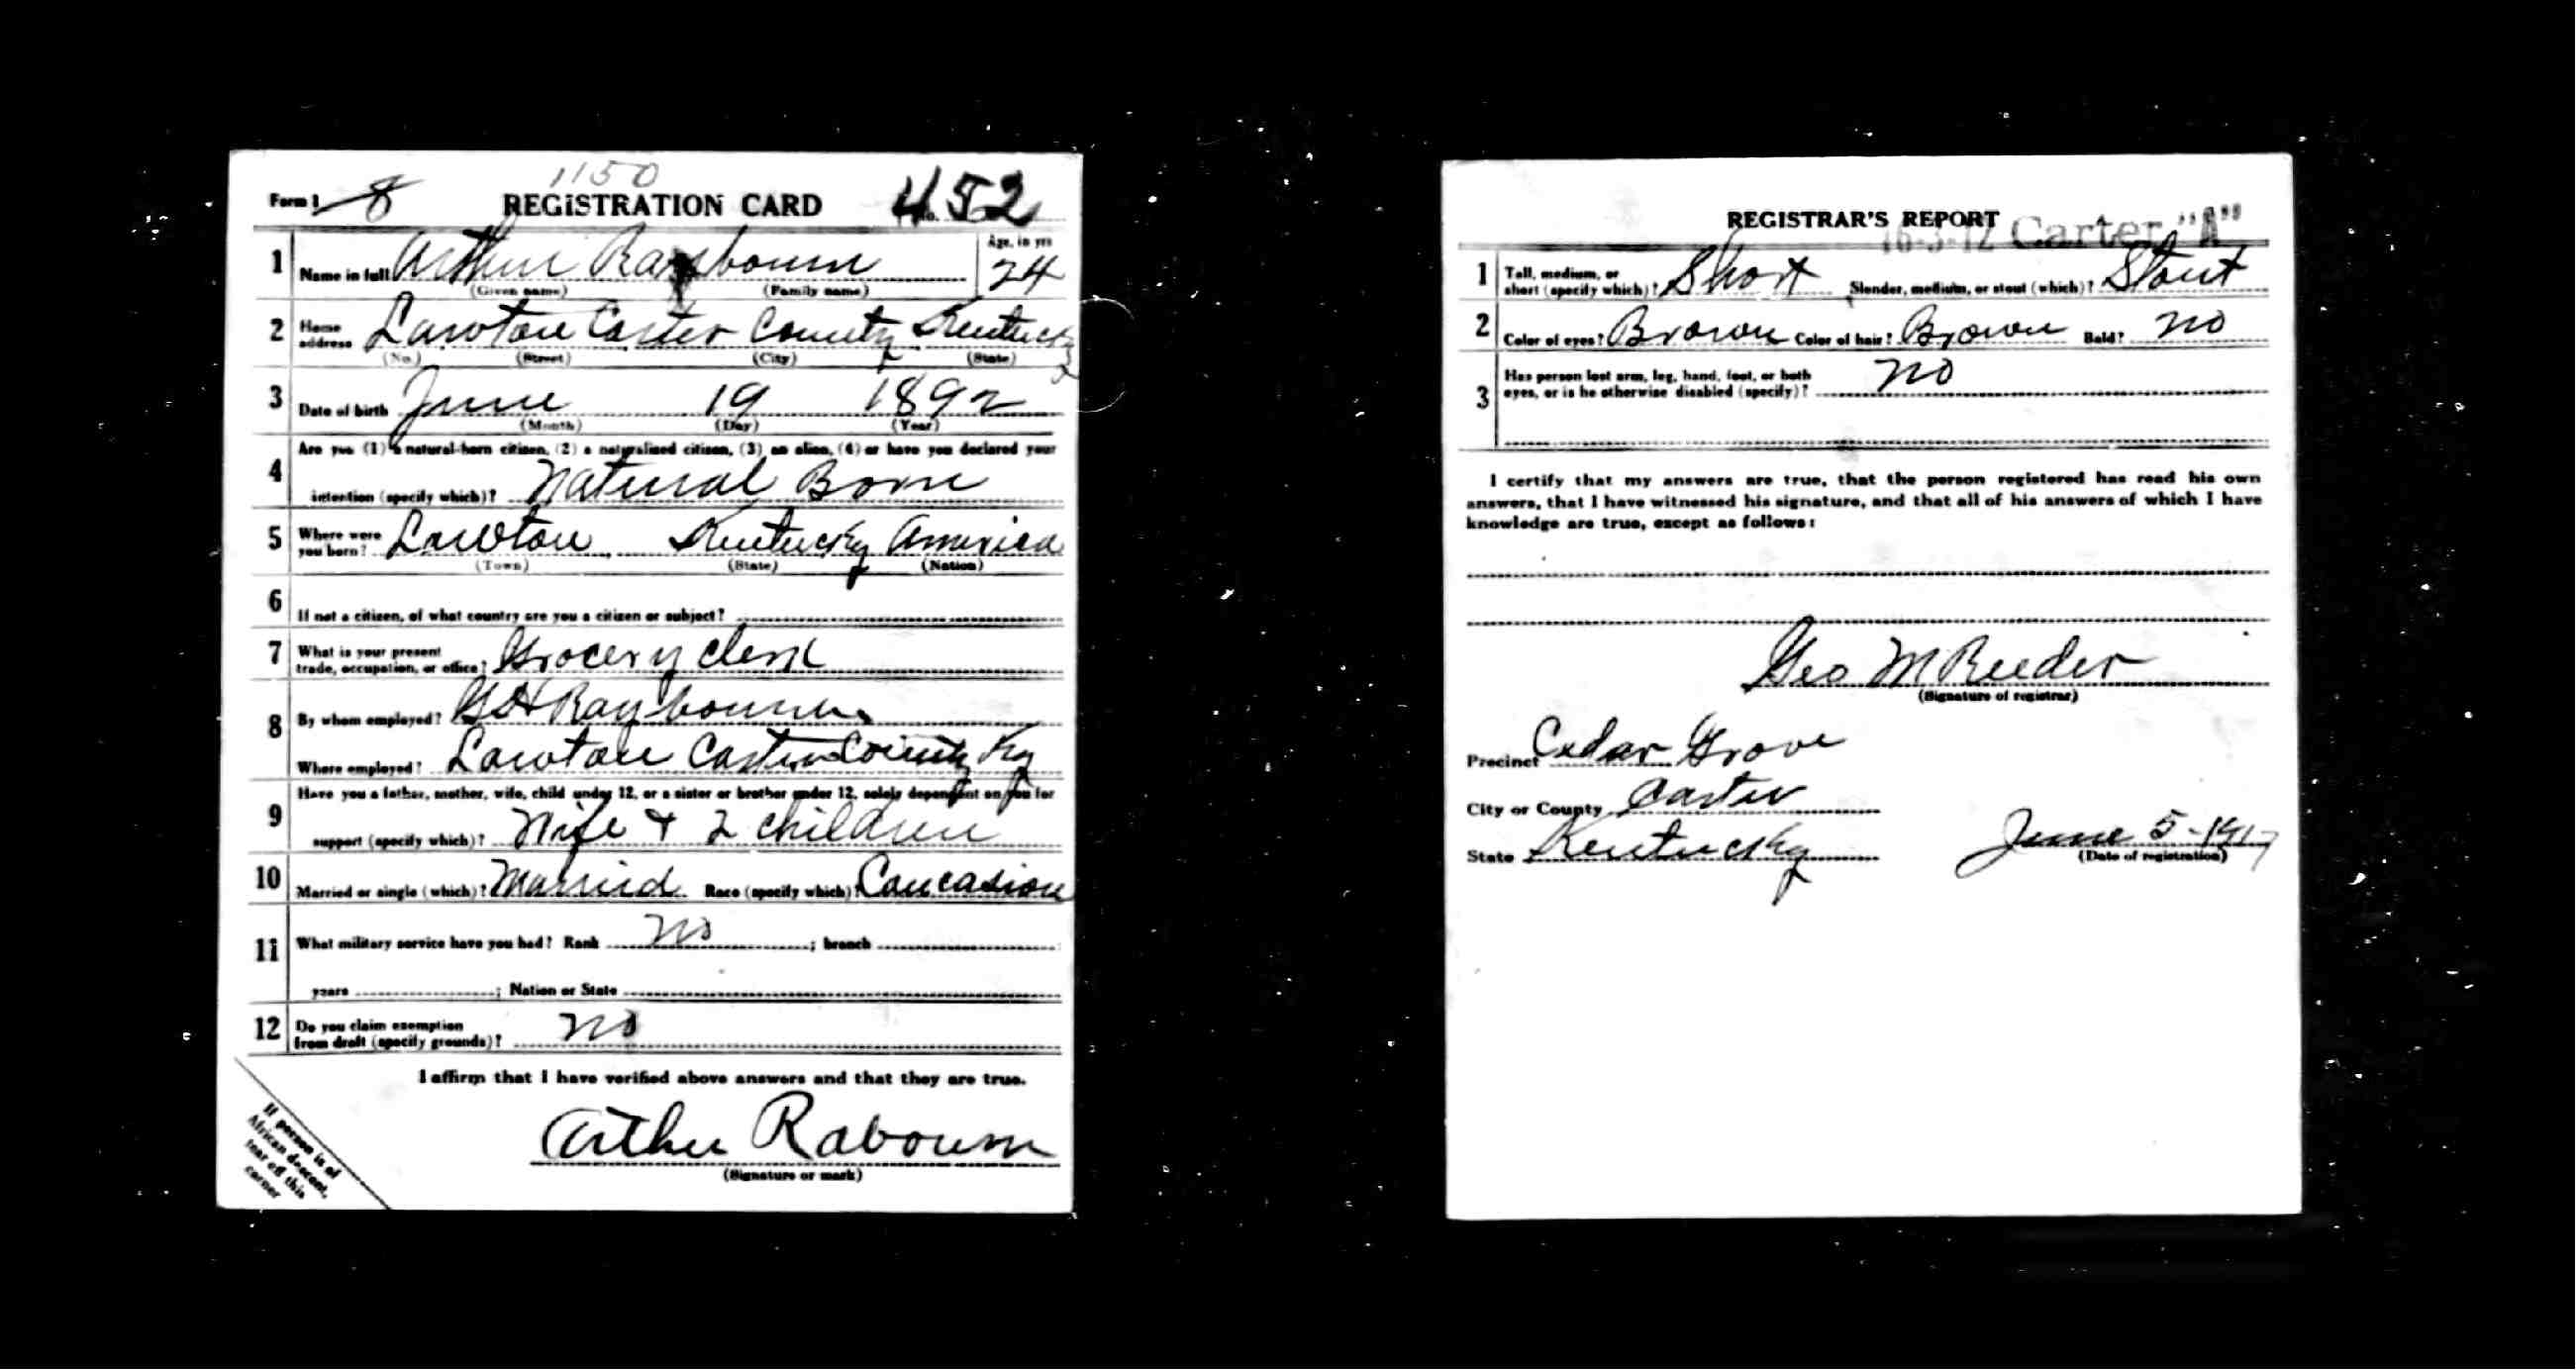 1150
Form 1 8 REGISTRATION CARD No. 452
1 Name in full Arthur Raybourn Age, in yrs 24
(Given name) (Family name)
2 Home address Lawton Carter County Kentucky
(No.) (Street) (City) (State)
3 Date of birth June 19 1892
(Month) (Day) (Year)
4 Are you (1) a natural-born citizen, (2) a naturalized citizen, (3) an alien, (4) or have you declared your
intention (specify which)? Natural Born
5 Where were you born? Lawton Kentucky America
(Town) (State) (Nation)
6 If not a citizen, of what country are you a citizen or subject?
7 What is your present
trade, occupation, or office? Grocery Clerk
8 By whom employed? Raybourn
Where employed? Lawton Carter County Ky
9 Have you a father, mother, wife, child under 12, or a sister or brother under 12, solely dependent on you for
support (specify which)? Wife + 2 children
10 Married or single (which)? Married Race (specify which)? Caucasion
11 What military service have you had? Rank no ; branch
years ; Nation or State
12 Do you claim exemption
from draft (specify grounds)? no
I affirm that I have verified above answers and that they are true.
Arthur Rabourn
(Signature or mark)
If person is of
African descent,
tear off this
corner
REGISTRAR'S REPORT 16-3-12 Carter "A"
1 Tall, medium, or
short (specify which)? Short Slender, medium, or stout (which)? Stout
2 Color of eyes? Brown Color of hair? Brown Bald? no
3 Has person lost arm, leg, hand, foot, or both
eyes, or is he otherwise disabled (specify)? no
I certify that my answers are true, that the person registered has read his own
answers, that I have witnessed his signature, and that all of his answers of which I have
knowledge are true, except as follows:
Geo M Reeder
(Signature of registrar)
Precinct Cedar Grove
City or County Carter
State Kentucky June 5-1917
(Date of registration)